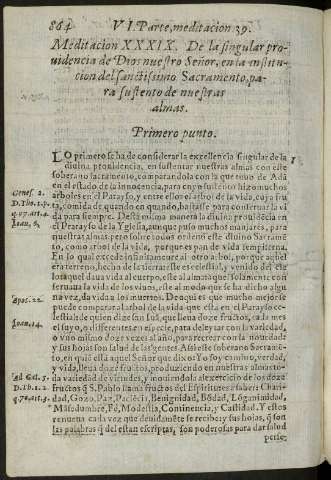 864 VI. Parte, meditacion 39.
Meditacion XXXIX. De la singular pro-
uidencia de Dios nuestro Señor, en la institu-
cion del sanctissimo Sacramento, pa-
ra sustento de nuestras
almas.
Primero punto.
LO primero se ha de considerar la excellencia singular de la
diuina prouidencia, en sustentar nuestras almas con este
soberano sacramento, comparandola con la que tuuo de Adã
en el estado de la innocencia, para cuyo sustento hizo muchos
arboles en el Parayso, y entre ellos el arbol de la vida, cuya fru
ta, comida de quando en quando, bastasse para conseruar la vi
da para siempre. Desta misma manera la diuina prouidẽcia en
el Parayso de la Yglesia, aunque puso muchos manjares, para
nuestras almas, pero sobre todos ordenó este diuino Sacramẽ
to, como arbol de la vida, porque es pan de vida sempiterna.
En lo qual excede infinitamente al otro arbol, porque aquel
era terreno, hecho de la tierra: este es celestial, y venido del cie
lo: aquel daua vida al cuerpo, este al alma: aquel solamente con
seruaua la vida de los viuos, este al modo que se ha dicho algu
na vez, da vida a los muertos. De aqui es que mucho mejor se
puede comparar al arbol de la vida que está en el Parayso ce-
lestial: de quien dize san Iuã, que lleua doze fructos, cada mes
el suyo, o differentes en especie, para deleytar con la variedad,
o vno mismo doze vezes al año, para recrear con la nouedad
y sus hojas son salud de las gentes. Assi este soberano Sacramẽ
to, en quiẽ està aquel Señor que dixo: Yo soy camino, verdad,
y vida, lleua doze fructos, produziendo en nuestras almas to-
da variedad de virtudes, y mouiendolas al exercicio de los doze
fructos q̃ S. Pablo llama fructos del Espiritu: es a saber: Chari
dad, Gozo, Paz, Paciẽcia, Benignidad, Bõdad, Lõganimidad,
Mãsedumbre, Fè, Modestia, Continencia, y Castidad. Y estos
renueua cada vez que deuidamẽte se recibe: y sus hojas, q̃ son
las palabras q̃ del estan escriptas, son poderosas para dar salud
Genes. 2.
D. Tho. 1. p.
q. 97. art. 4.
Ioan. 6.
Apoc. 22.
Ioan. 14.
Ad Gal. 5.
D. Th. 1. 2.
q. 70. art. 3.
1